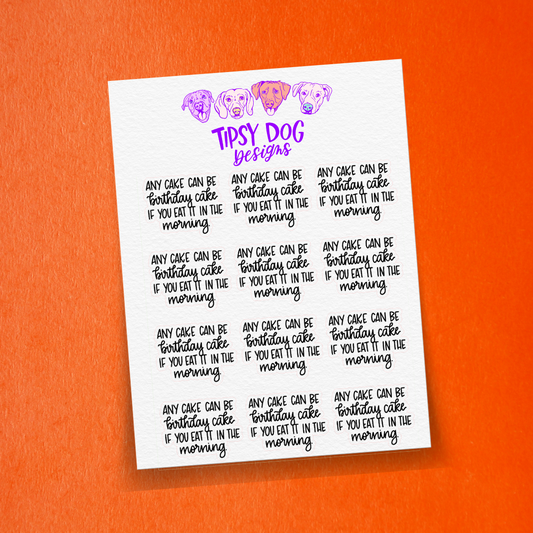 TIPSY DOG
Designs
ANY CAKE CAN BE
birthday cake
IF YOU EAT IT IN THE
morning
ANY CAKE CAN BE
birthday cake
IF YOU EAT IT IN THE
morning
ANY CAKE CAN BE
birthday cake
IF YOU EAT IT IN THE
morning
ANY CAKE CAN BE
birthday cake
IF YOU EAT IT IN THE
morning
ANY CAKE CAN BE
birthday cake
IF YOU EAT IT IN THE
morning
ANY CAKE CAN BE
birthday cake
IF YOU EAT IT IN THE
morning
ANY CAKE CAN BE
birthday cake
IF YOU EAT IT IN THE
morning
ANY CAKE CAN BE
birthday cake
IF YOU EAT IT IN THE
morning
ANY CAKE CAN BE
birthday cake
IF YOU EAT IT IN THE
morning
ANY CAKE CAN BE
birthday cake
IF YOU EAT IT IN THE
morning
ANY CAKE CAN BE
birthday cake
IF YOU EAT IT IN THE
morning
ANY CAKE CAN BE
birthday cake
IF YOU EAT IT IN THE
morning